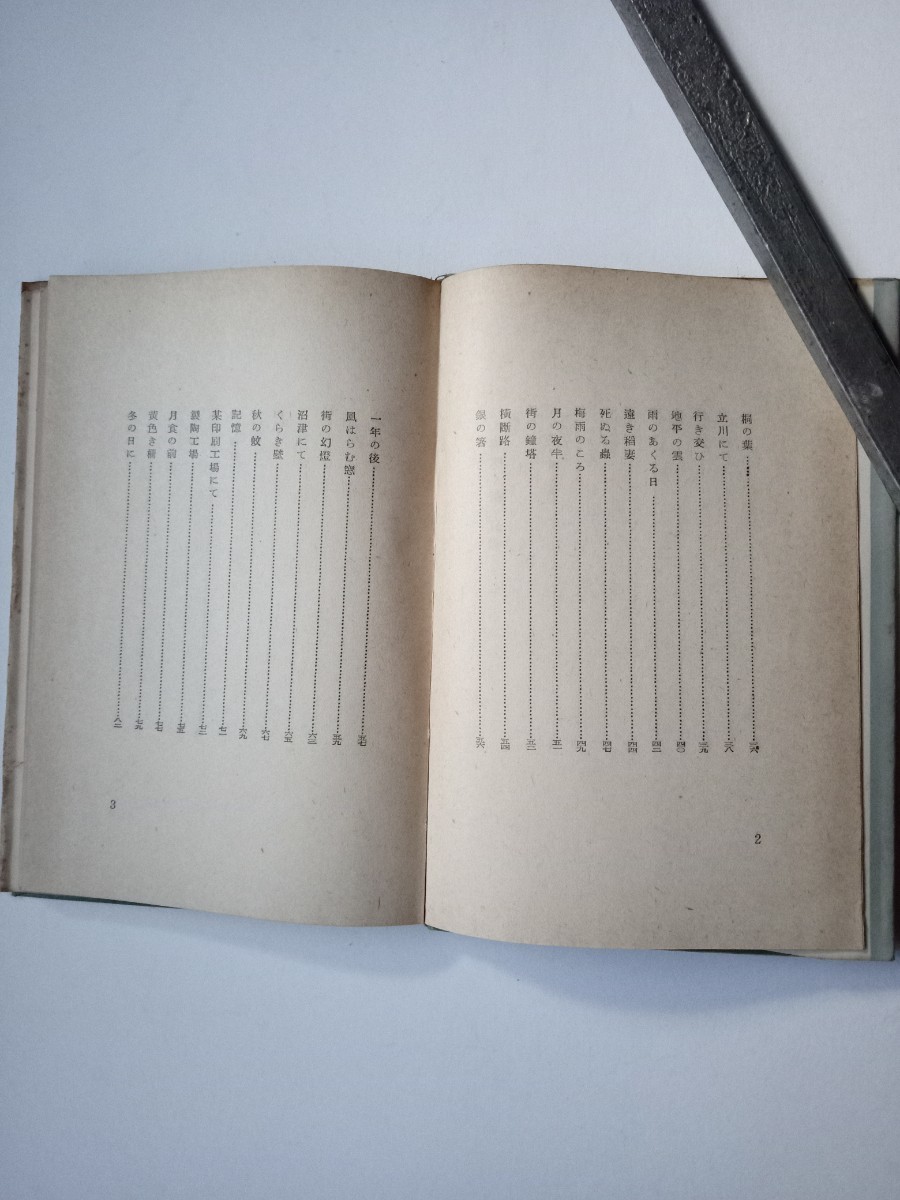 桐の葉……三六
立川にて……三八
行き交ひ……三九
地平の雲……四〇
雨のあくる日……
遠き稲妻……四四
死ぬる蟲……四七
梅雨のころ……四九
月の夜半……五一
街の鐘塔……
横斷路……五四
銀の箸……五六
2
一年の後……五七
風はらむ窓……五九
街の幻燈……
沼津にて……六五
くらき壁……六七
秋の蚊……六九
記憶……七一
某印刷工場にて……七三
製陶工場……七五
月食の前……七七
黄色き……七九
冬の日に……
3